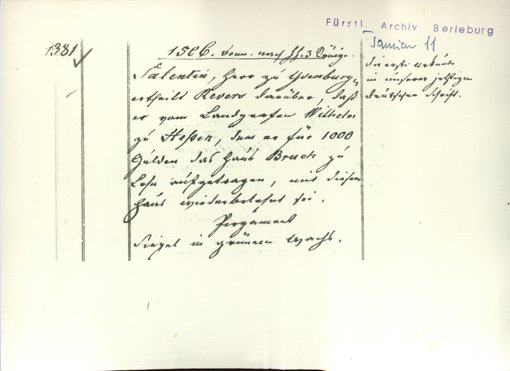 Fürstl. Archiv Berleburg
1381
1506. Sonn. nach Hl. 3 Könige.
Januar 11
Salentin, Herr zu Isenburg,
ertheilt Revers darüber, daß
er vom Landgrafen Wilhelm
zu Hessen, dem er für 1000
Gulden das Haus Bruch zu
Lehn aufgetragen, mit diesem
Haus wiederbelehnt sei.
Pergament
Siegel in grünem Wachs.
die erste Urkunde
in unserer jetzigen
deutschen Schrift.